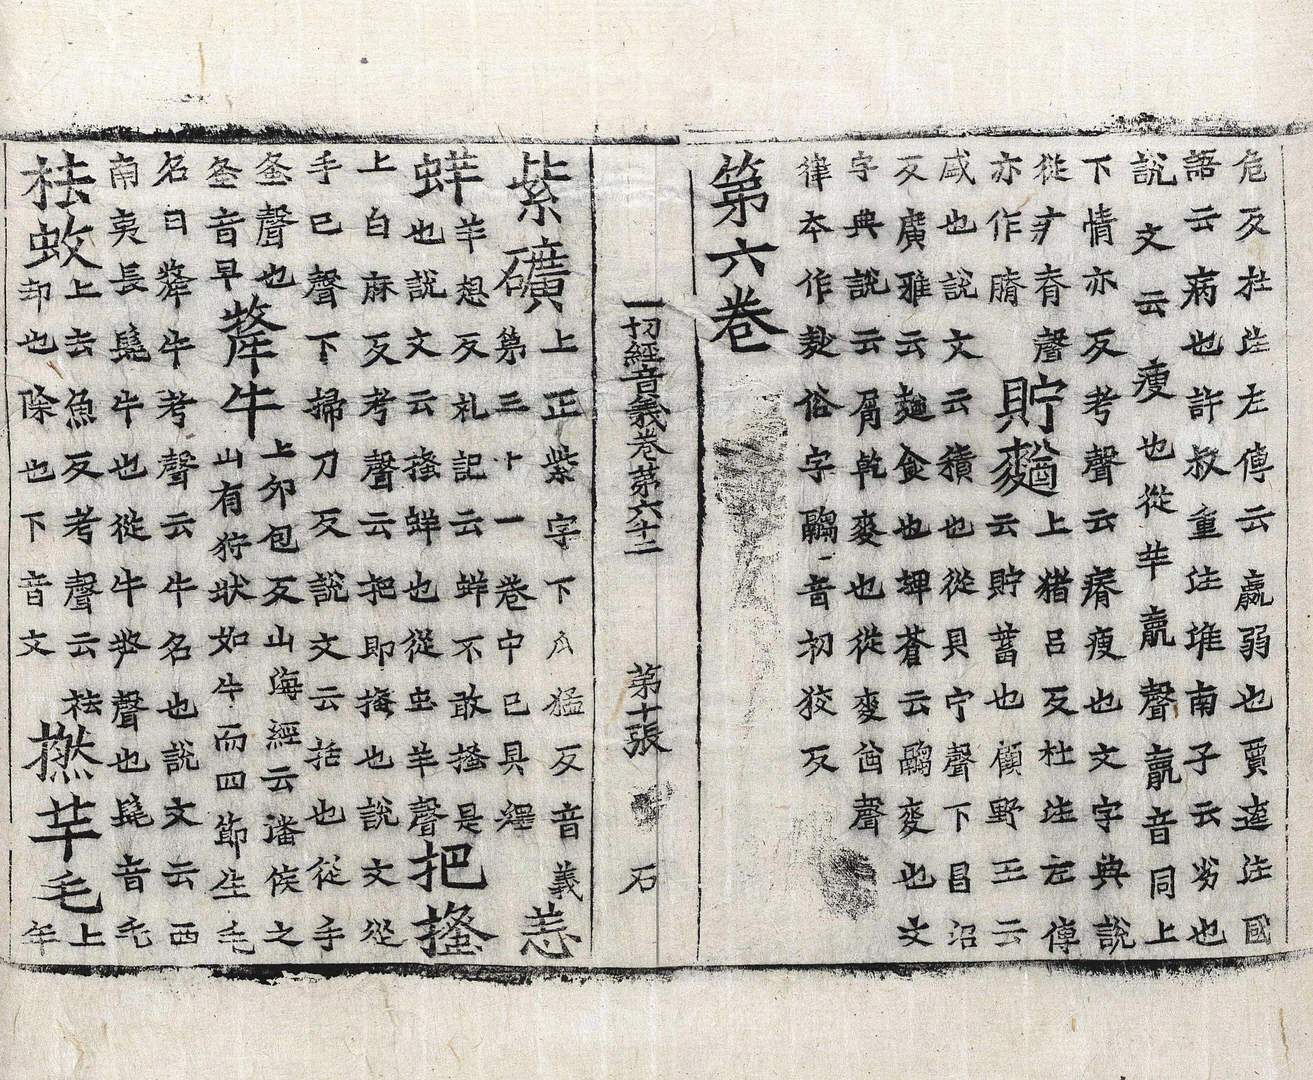 危反杜注左傳云羸弱也賈逵注國
語云病也許叔重注淮南子云劣也
說文云瘦也從羊𣎆聲𣎆音同上
下情亦反考聲云瘠瘦也文字典說
從疒脊聲
亦作膌
貯
上猪呂反杜注左傳
云貯蓄也顧野王云
咸也說文云積也從貝宁聲下昌沼
反廣雅云食也埤蒼云䴰麥也文
字典說云屑乾麥也從麥酋聲
律本作麨俗字䴰音初狡反
第六卷
一切經音義卷第六十二 第十張 石
紫礦
上正紫字下瓜猛反音義
第三十一卷中已具釋
恙
蛘
羊想反礼記云蛘不敢搔是
也說文云搔蛘也從虫羊聲
把搔
上白麻反考聲云把即搔也說文從
手巴聲下掃刀反說文云括也從手
蚤聲也
蚤音早
犛牛
上卯包反山海經云潘侯之
山有狩狀如牛而四節生毛
名曰犛牛考聲云牛名也說文云西
南夷長髦牛也從牛𠩺聲也髦音毛
祛蚊
上去魚反考聲云祛
却也除也下音文
撚芉毛
上
年